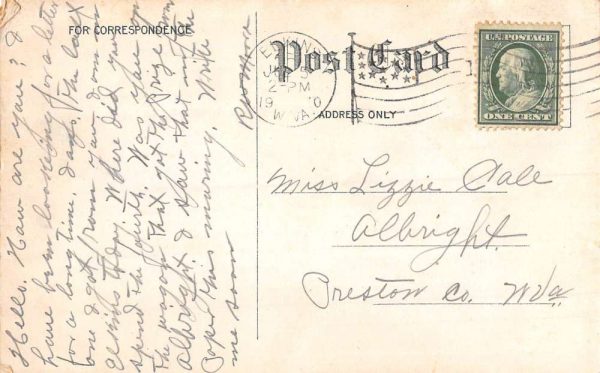 FOR CORRESPONDENCE
Post Card
ADDRESS ONLY
ELKINS
2-PM
W.VA.
U.S. POSTAGE
ONE CENT
Hello. How are you? I
have been looking for a letter
for a long time. Says the last
one I got from you down
Elkins today. Where did you
spend the fourth. Was you on
the wagon that got the prize from
Albright. I saw that in the
Paper this muring. Write
me soon
Miss Lizzie Cale
Albright.
Preston Co. W Va